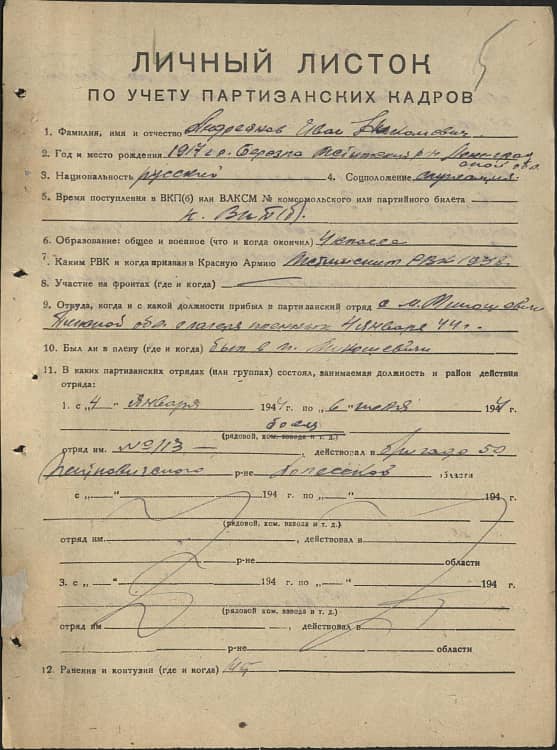 ЛИЧНЫЙ ЛИСТОК
ПО УЧЕТУ ПАРТИЗАНСКИХ КАДРОВ
1. Фамилия, имя и отчество Иван
2. Год и место рождения 1917 г. р. Березка
3. Национальность русский 4. Соцположение служащий
5. Время поступления в ВКП(б) или ВЛКСМ № комсомольского или партийного билета
к. ВКП(б).
6. Образование: общее и военное (что и когда окончил) 4 класса
7. Каким РВК и когда призван в Красную Армию РВК 193
8. Участие на фронтах (где и когда)
9. Откуда, когда и с какой должности прибыл в партизанский отряд с м.
обл. с лагеря 4 января 44 г.
10. Был ли в плену (где и когда) был в п.
11. В каких партизанских отрядах (или группах) состоял, занимаемая должность и район действия
отряда:
1. с „4“ января 1944 г. по „6“ июля 1944 г.
боец
(рядовой, ком. взвода и т. д.)
отряд им. № 113 , действовал в бригаде 50
р-не области
с „ “ 194 г. по „ “ 194 г.
(рядовой, ком. взвода и т. д.)
отряд им. , действовал в
р-не области
3. с „ “ 194 г. по „ “ 194 г.
(рядовой, ком. взвода и т. д.)
отряд им , действовал в
р-не области
12. Ранения и контузии (где и когда)